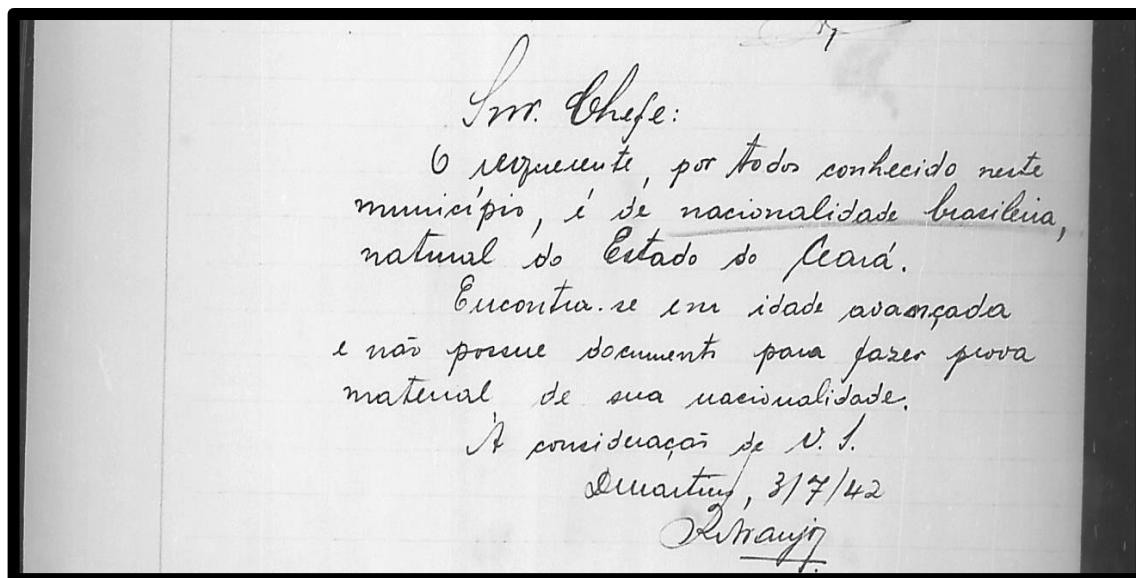 Snr. Chefe:
O requerente, por todos conhecido neste
município, é de nacionalidade brasileira,
natural do Estado do Ceará.
Encontra-se em idade avançada
e não possue documento para fazer prova
material de sua nacionalidade.
À consideração de V. S.
3/7/42
RAraujo